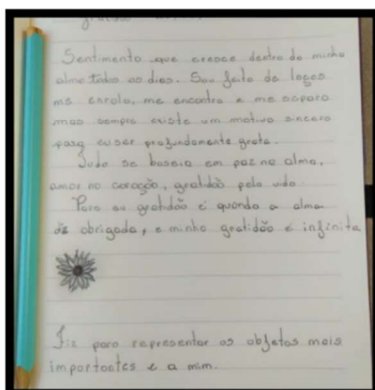 Sentimento que cresce dentro da minha
alma todos os dias. Sou feita de laços
me enrolo, me encontro e me separo
mas sempre existe um motivo sincero
para eu ser profundamente grata.
Tudo se baseia em paz na alma,
amor no coração, gratidão pela vida
Para eu gratidão é quando a alma
diz obrigada, e minha gratidão é infinita
Fiz para representar os objetos mais
importantes e a mim.